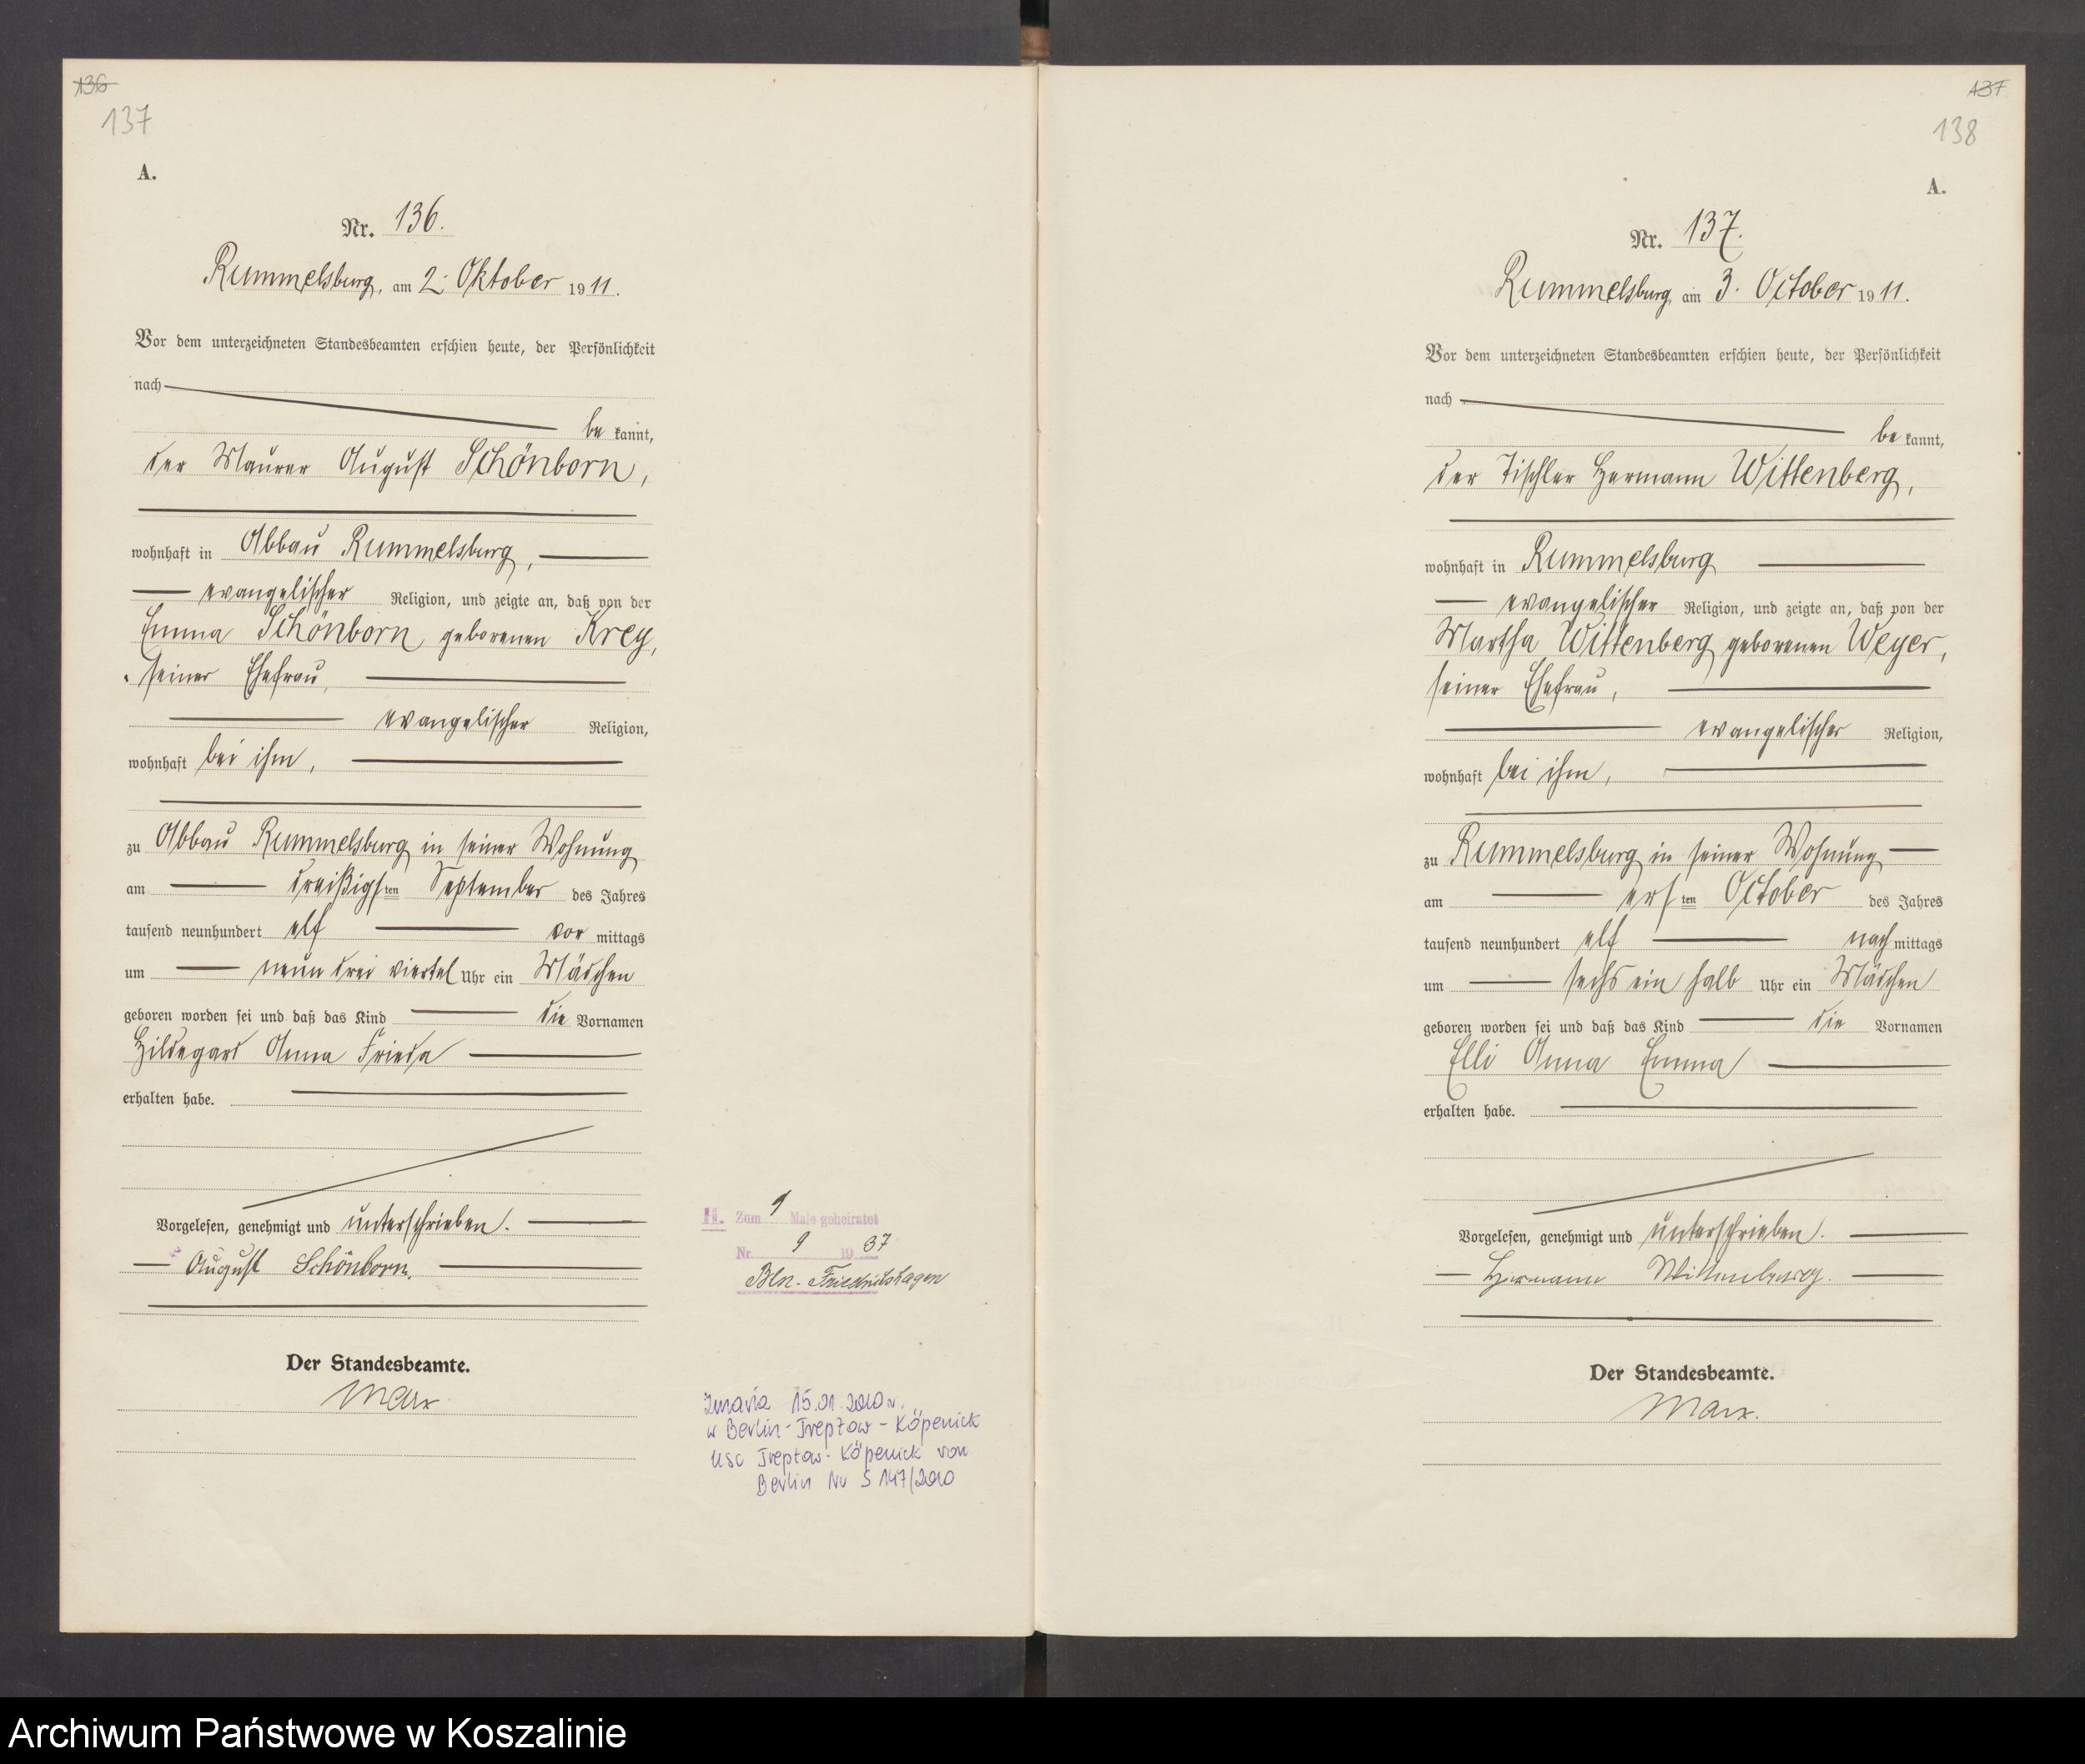 136
137
A.
Nr. 136.
Rummelsburg, am 2. Oktober 1911.
Vor dem unterzeichneten Standesbeamten erschien heute, der Persönlichkeit
nach
be kannt,
der Maurer August Schönborn,
wohnhaft in Abbau Rummelsburg,
evangelischer Religion, und zeigte an, daß von der
Emma Schönborn geborenen Krey,
seiner Ehefrau,
evangelischer Religion,
wohnhaft bei ihm,
zu Abbau Rummelsburg in seiner Wohnung
am dreißigsten September des Jahres
tausend neunhundert elf vor mittags
um neun drei viertel Uhr ein Mädchen
geboren worden sei und daß das Kind die Vornamen
Hildegard Anna Frieda
erhalten habe.
Vorgelesen, genehmigt und unterschrieben.
August Schönborn.
Der Standesbeamte.
Marx
H. Zum 1 Male geheiratet
Nr. 9 1937
Bln.-Friedrichshagen
Zmarła 15.01.2010 r.
w Berlin-Treptow-Köpenick
USC Treptow-Köpenick von
Berlin Nr S 147/2010
137
138
A.
Nr. 137.
Rummelsburg, am 3. October 1911.
Vor dem unterzeichneten Standesbeamten erschien heute, der Persönlichkeit
nach
be kannt,
der Tischler Hermann Wittenberg,
wohnhaft in Rummelsburg
evangelischer Religion, und zeigte an, daß von der
Martha Wittenberg geborenen Weyer,
seiner Ehefrau,
evangelischer Religion,
wohnhaft bei ihm,
zu Rummelsburg in seiner Wohnung
am ersten October des Jahres
tausend neunhundert elf nach mittags
um sechs ein halb Uhr ein Mädchen
geboren worden sei und daß das Kind die Vornamen
Elli Anna Emma
erhalten habe.
Vorgelesen, genehmigt und unterschrieben.
Hermann Wittenberg.
Der Standesbeamte.
Marx.
Archiwum Państwowe w Koszalinie